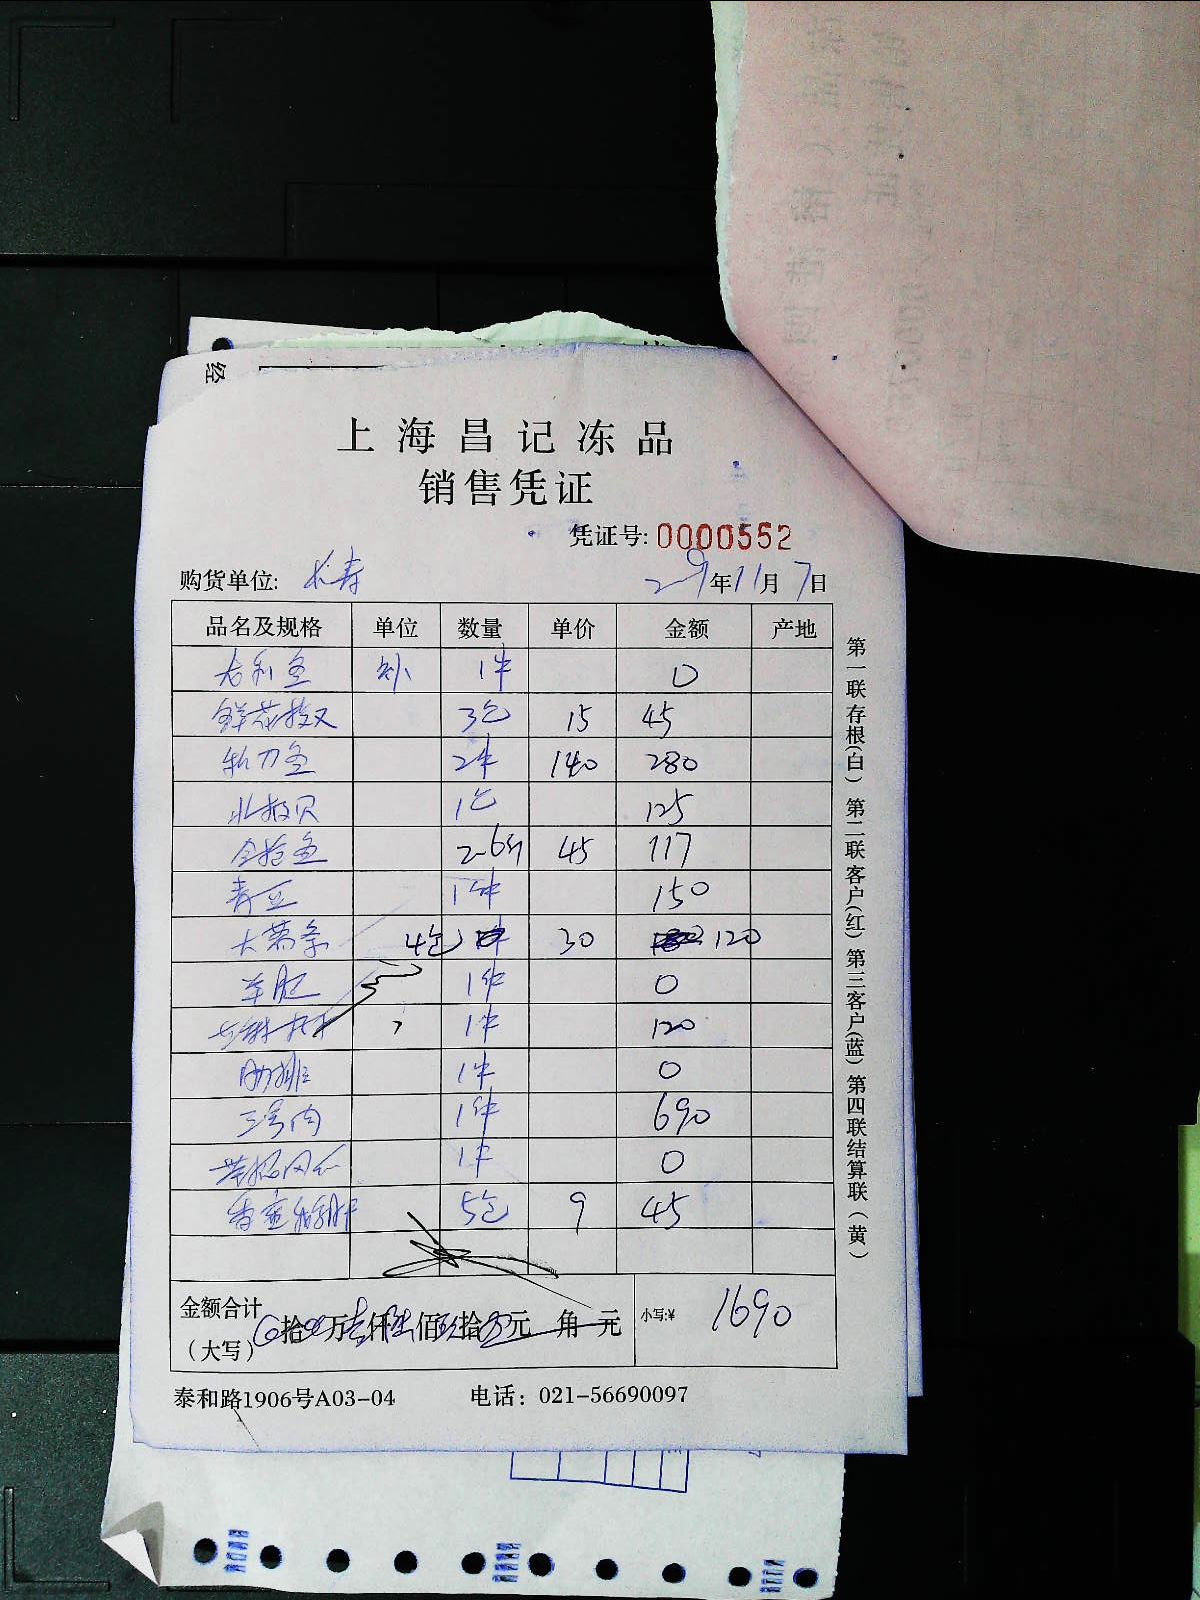 经
上海昌记冻品
销售凭证
凭证号: 0000552
购货单位: 长寿 29年11月7日
品名及规格 单位 数量 单价 金额 产地
1件 0
3包 15 45
2件 140 280
北极贝 1包 125
金枪鱼 2.6斤 45 117
青豆 1件 150
大薯条 4包 30 120
羊腿 1件 0
1件 120
肋排 1件 0
三号肉 1件 690
1件 0
5包 9 45
金额合计
(大写) 拾 万 仟 佰 拾 元 角 元 小写:¥ 1690
泰和路1906号A03-04 电话: 021-56690097
第一联存根(白) 第二联客户(红) 第三客户(蓝) 第四联结算联(黄)